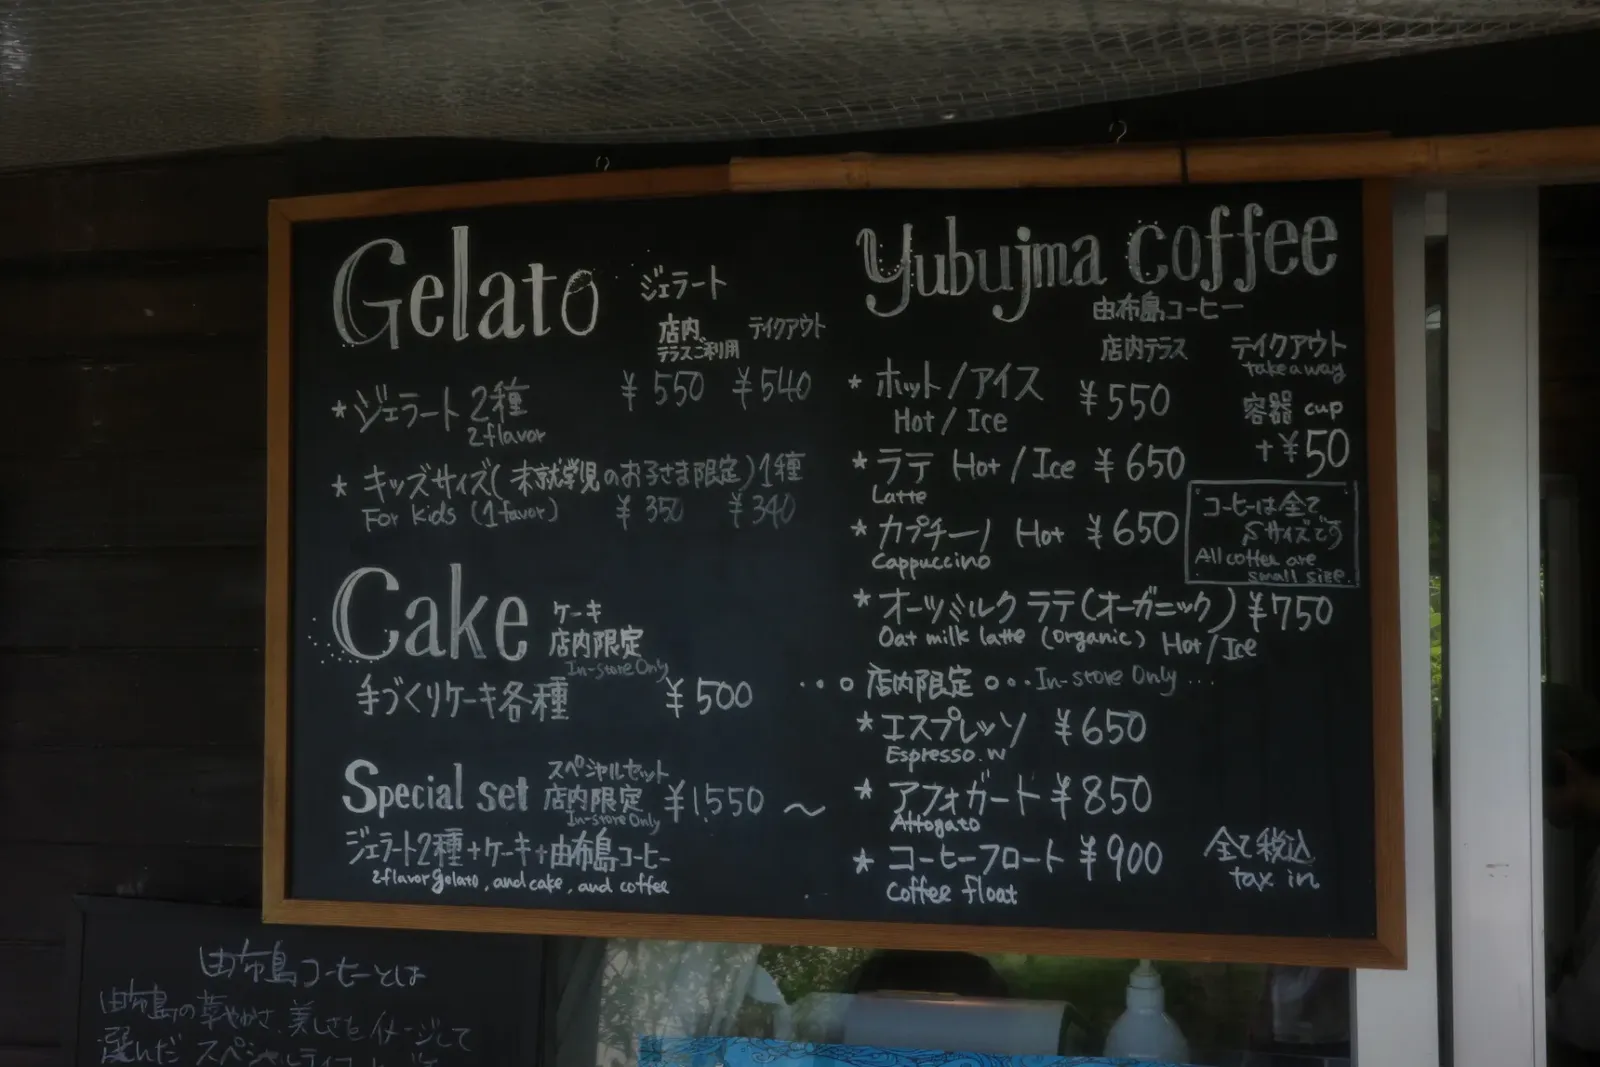 Gelato ジェラート
店内、 テイクアウト
テラスご利用
★ ジェラート 2種 ¥550 ¥540
2flavor
★ キッズサイズ(未就学児のお子さま限定)1種
For kids (1favor) ¥350 ¥340
Cake ケーキ
店内限定
In-store Only
手づくりケーキ各種 ¥500
Special set スペシャルセット
店内限定 ¥1,550 〜
In-store Only
ジェラート2種+ケーキ+由布島コーヒー
2flavor gelato, and cake, and coffee
Yubujma coffee
由布島コーヒー
店内テラス テイクアウト
takeaway
★ ホット/アイス ¥550 容器 cup
Hot / Ice +¥50
★ ラテ Hot / Ice ¥650
Latte
★ カプチーノ Hot ¥650
Cappuccino
コーヒーは全て
Sサイズです
All coffee are
small size.
★ オーツミルクラテ(オーガニック) ¥750
Oat milk latte (organic) Hot/Ice
店内限定 In-store Only
★ エスプレッソ ¥650
Espresso.w
★ アフォガード ¥850
Affogato
★ コーヒーフロート ¥900
Coffee float
全て税込
tax in
由布島コーヒーとは
由布島の華やかさ、美しさをイメージして
選んだ スペシャルティコーヒー